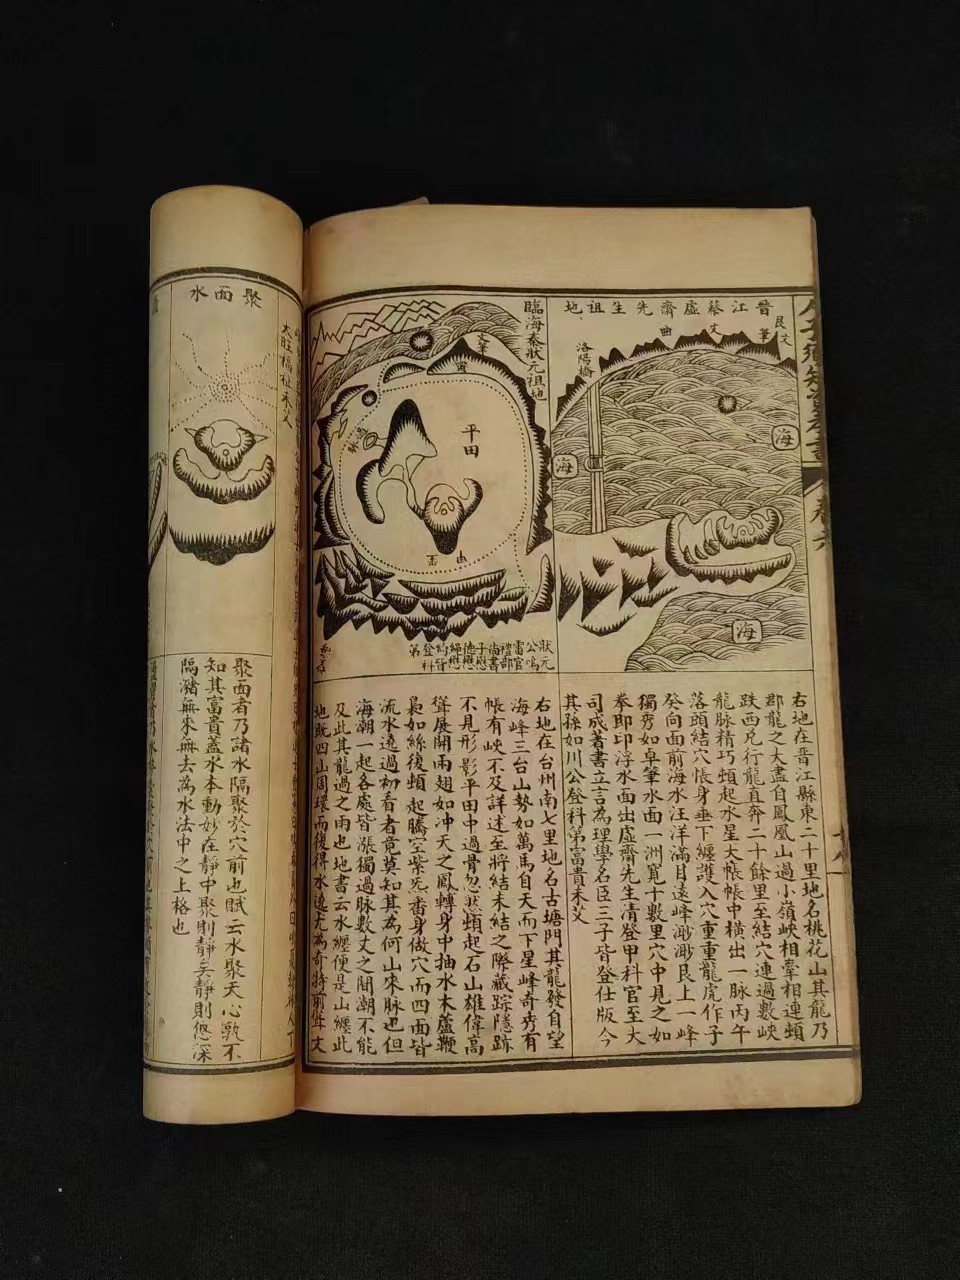 晉江蔡虛齋先生祖地
艮文
文筆
曲
洛陽橋
海
海
海
右地在晉江縣東二十里地名桃花山其龍乃
郡龍之大盡自鳳凰山過小嶺峽相牽相連頓
跌西兌行龍直奔二十餘里至結穴連過數峽
龍脉精巧頓起水星大帳帳中橫出一脉丙午
落頭結穴帳身垂下纏護入穴重重龍虎作子
癸向面前海水汪洋滿目遠峰渺渺艮上一峰
獨秀如卓筆水面一洲寬十數里穴中見之如
拳即印浮水面出虛齋先生清登甲科官至大
司成著書立言為理學名臣三子皆登仕版今
其孫如川公登科第富貴未艾
臨海秦狀元祖地
文筆
平田
狀元
公鳴
雷官
禮部
尚書
子懋
德懋
綿懋
約皆
登科
第
右地在台州南七里地名古塘門其龍發自望
海峰三台山勢如萬馬自天而下星峰奇秀有
帳有峽不及詳述至將結未結之際藏踪隱跡
不見形影平田中過骨忽然頓起石山雄偉高
聳展開兩翅如冲天之鳳轉身中抽水木蘆鞭
裊如絲後頓起騰空紫炁番身做穴而四面皆
流水遠過初看者竟莫知其為何山來脉也但
海潮一起各處皆漲獨過脉數丈之間潮不能
及此其龍過之雨也地書云水纏便是山纏此
地既四山周環而復得水遶尤為奇特前聳文
聚面水
大旺福祉未艾
聚面者乃諸水隔聚於穴前也賦云水聚天心孰不
知其富貴蓋水本動妙在靜中聚則靜矣靜則悠深
隔瀦無來無去為水法中之上格也